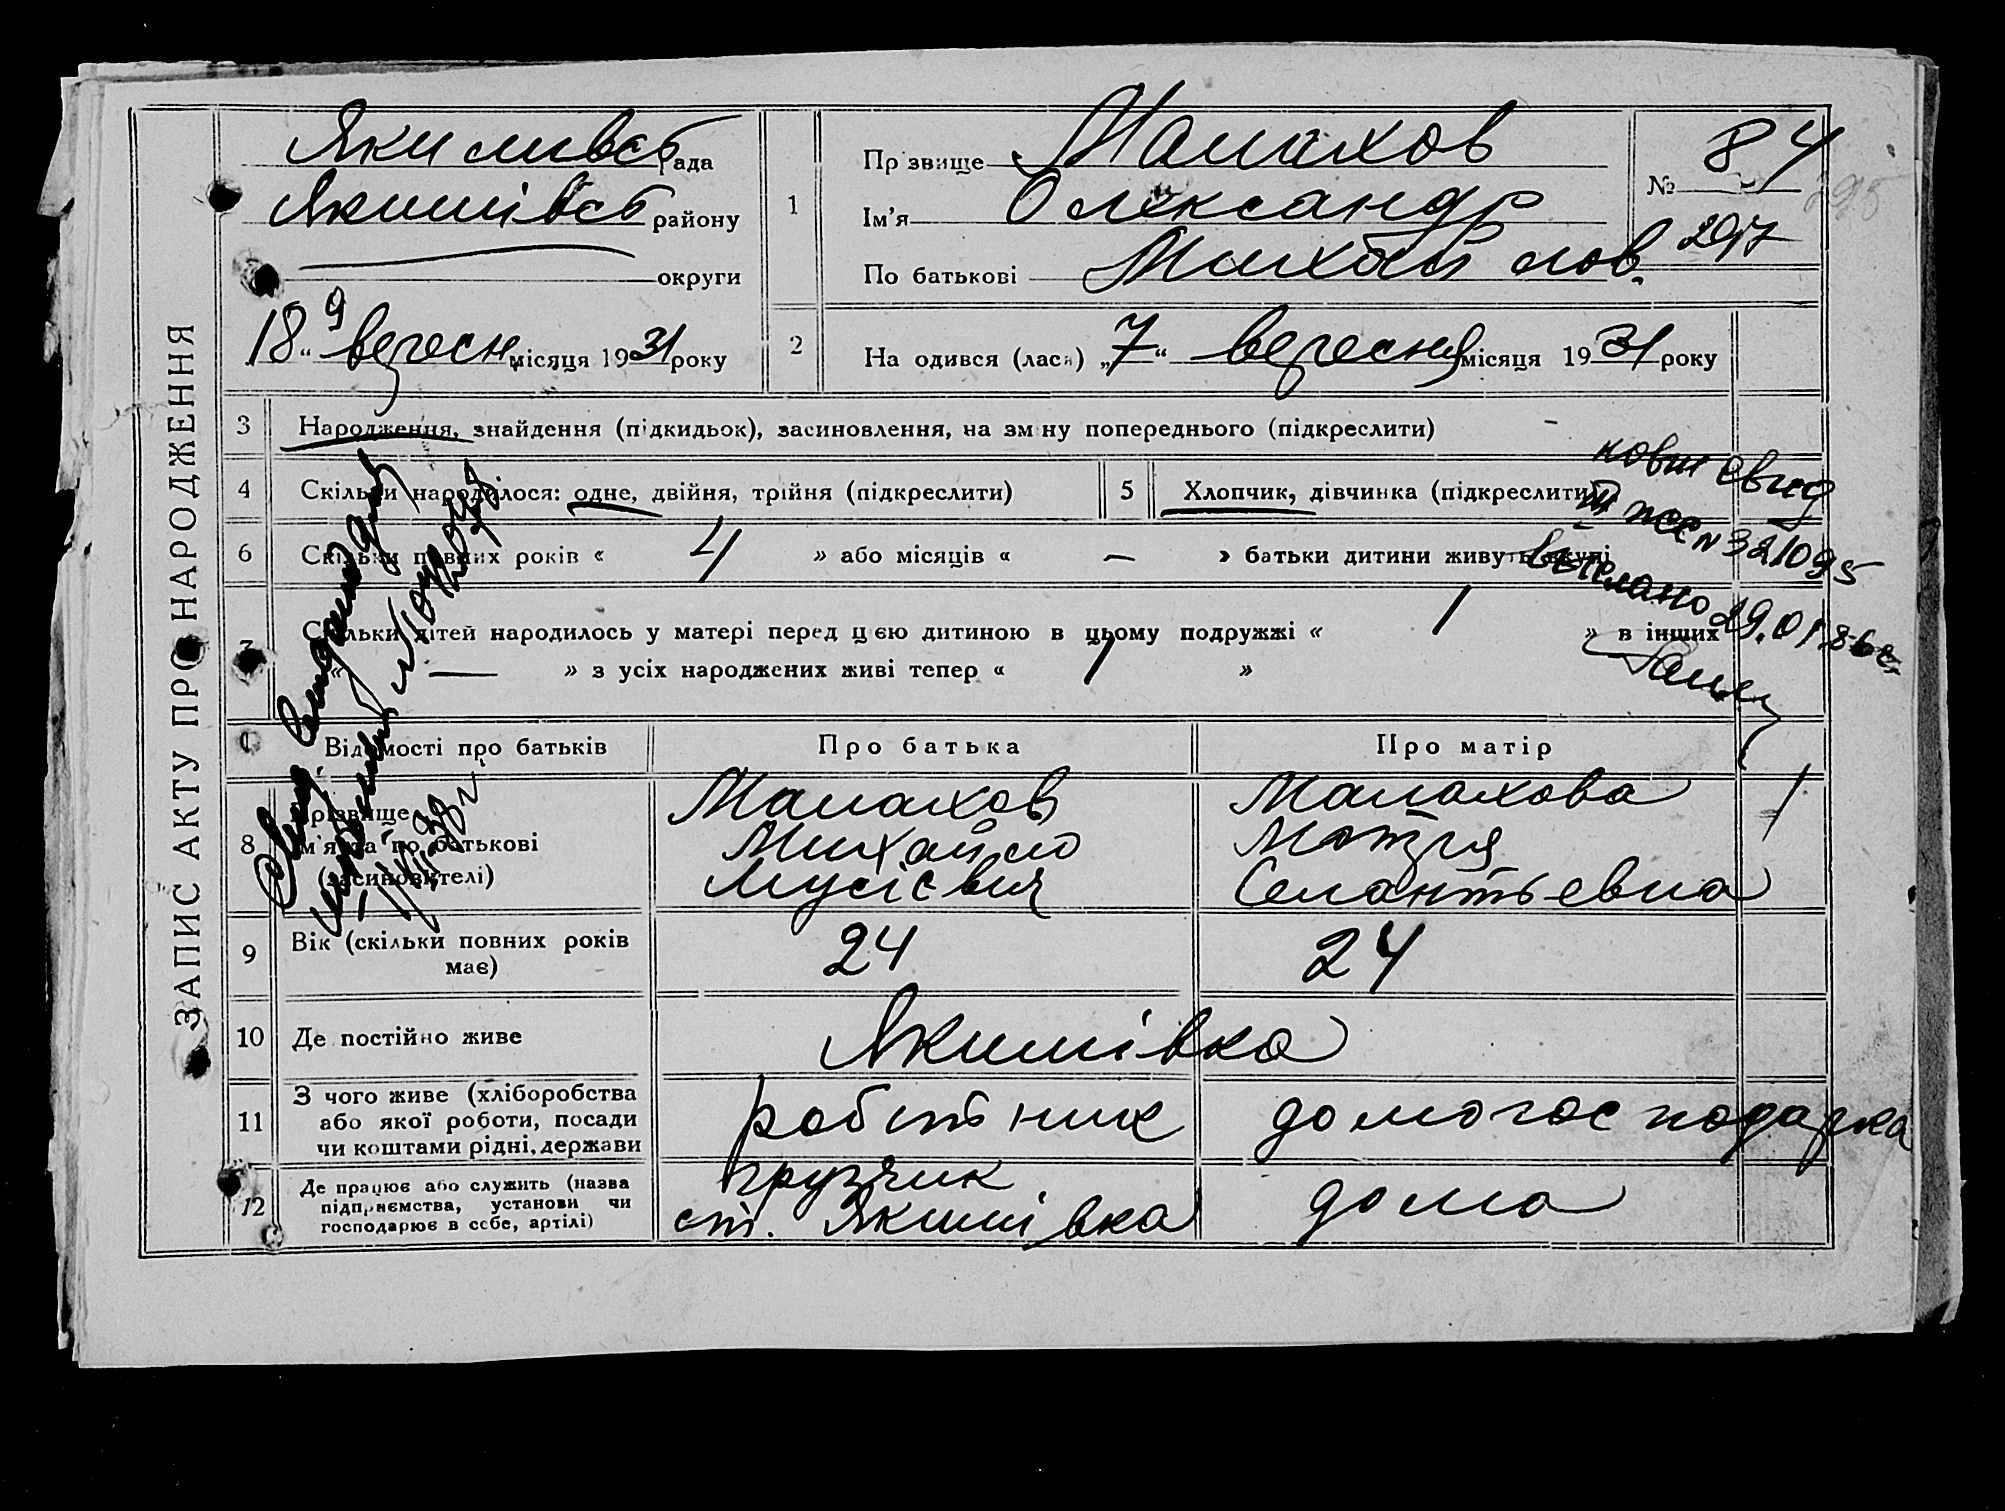 ЗАПИС АКТУ ПРО НАРОДЖЕННЯ
Якимівсь рада
Якимівсь району
округи
18 „ 9 вересн місяця 1931 року
1
Прізвище Малахов
Ім'я Олександр
По батькові Михайлов.
№ 84
295
297
2
На одився (лася) „7“ вересня місяця 1931 року
3 Народження, знайдення (підкидьок), засиновлення, на зміну попереднього (підкреслити)
4 Скільки народилося: одне, двійня, трійня (підкреслити)
5 Хлопчик, дівчинка (підкреслити)
6 Скільки повних років « 4 » або місяців « — » батьки дитини живуть вкупі
7 Скільки дітей народилось у матері перед цією дитиною в цьому подружжі « 1 » в інших
« — » з усіх народжених живі тепер « 1 »
№ 321095
выслано 29.01.86г.
Відомості про батьків
Про батька
Про матір
8 Прізвище
ім'я та по батькові
(засиновителі)
Малахов
Михайло
Мусієвич
Малахова
Мотря
Селантьевна
9 Вік (скільки повних років має)
24
24
10 Де постійно живе
Якимівка
11 З чого живе (хліборобства
або якої роботи, посади
чи коштами рідні, держави
робітник
домогосподарка
12 Де працює або служить (назва
підприємства, установи чи
господарює в себе, артілі)
грузчик
ст. Якимівка
дома